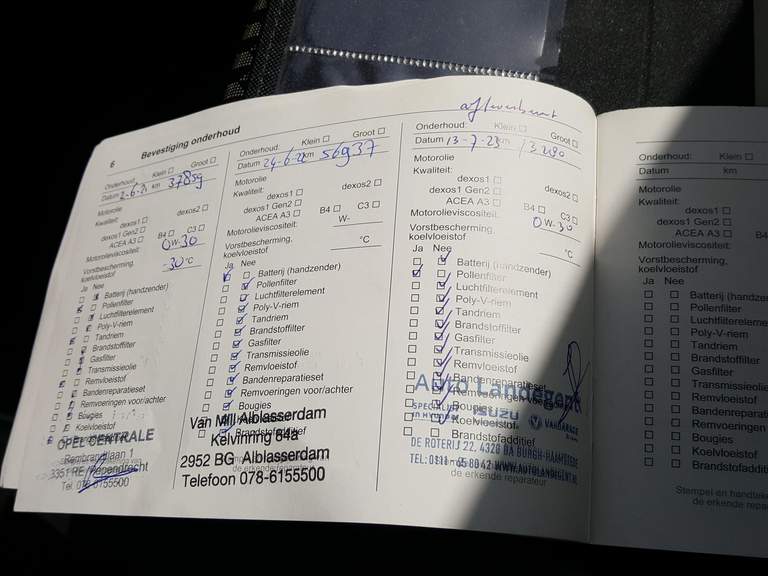 6 Bevestiging onderhoud
Onderhoud: Klein Groot
Datum 2-6-2 km 37859
Motorolie
Kwaliteit:
dexos1 dexos2
dexos1 Gen2
ACEA A3 B4 C3
Motorolieviscositeit: 0W-30
Vorstbescherming,
koelvloeistof -30 °C
Ja Nee
Batterij (handzender)
Pollenfilter
Luchtfilterelement
Poly-V-riem
Tandriem
Brandstoffilter
Gasfilter
Transmissieolie
Remvloeistof
Bandenreparatieset
Remvoeringen voor/achter
Bougies
Koelvloeistof
OPEL CENTRALE
Rembrandtlaan 1
Tel.
Onderhoud: Klein Groot
Datum 24-6-2 km 56937
Motorolie
Kwaliteit:
dexos1 dexos2
dexos1 Gen2
ACEA A3 B4 C3
Motorolieviscositeit: W-
Vorstbescherming,
koelvloeistof °C
Ja Nee
Batterij (handzender)
Pollenfilter
Luchtfilterelement
Poly-V-riem
Tandriem
Brandstoffilter
Gasfilter
Transmissieolie
Remvloeistof
Bandenreparatieset
Remvoeringen voor/achter
Bougies
Van Mill Alblasserdam
Kelvinring 84a
Brandstofadditief
2952 BG Alblasserdam
Telefoon 078-6155500
Onderhoud: Klein Groot
Datum 13-7-23 km
Motorolie
Kwaliteit:
dexos1 dexos2
dexos1 Gen2
ACEA A3 B4 C3
Motorolieviscositeit: 0W-30
Vorstbescherming,
koelvloeistof °C
Ja Nee
Batterij (handzender)
Pollenfilter
Luchtfilterelement
Poly-V-riem
Tandriem
Brandstoffilter
Gasfilter
Transmissieolie
Remvloeistof
Bandenreparatieset
Auto Landegent
Bougies
ISUZU
Koelvloeistof
Brandstofadditief
DE ROTERIJ 22, 4328 BA BURGH-HAAMSTEDE
TEL: 0111-65 80 42 WWW.AUTOLANDEGENT.NL
de erkende reparateur
Onderhoud: Klein
Datum km
Motorolie
Kwaliteit:
dexos1
dexos1 Gen2
ACEA A3 B4
Motorolieviscositeit:
Vorstbescherming,
koelvloeistof
Ja Nee
Batterij (handzen
Pollenfilter
Luchtfilterelem
Poly-V-riem
Tandriem
Brandstoffilter
Gasfilter
Transmissieolie
Remvloeistof
Bandenreparat
Remvoeringen
Bougies
Koelvloeistof
Brandstofaddit
Stempel en handtek
de erkende repa